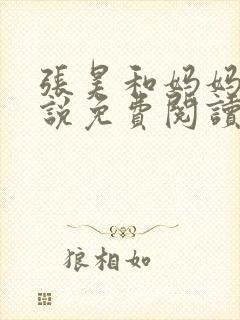 張昊和妈妈
說免費閱讀
狼相如